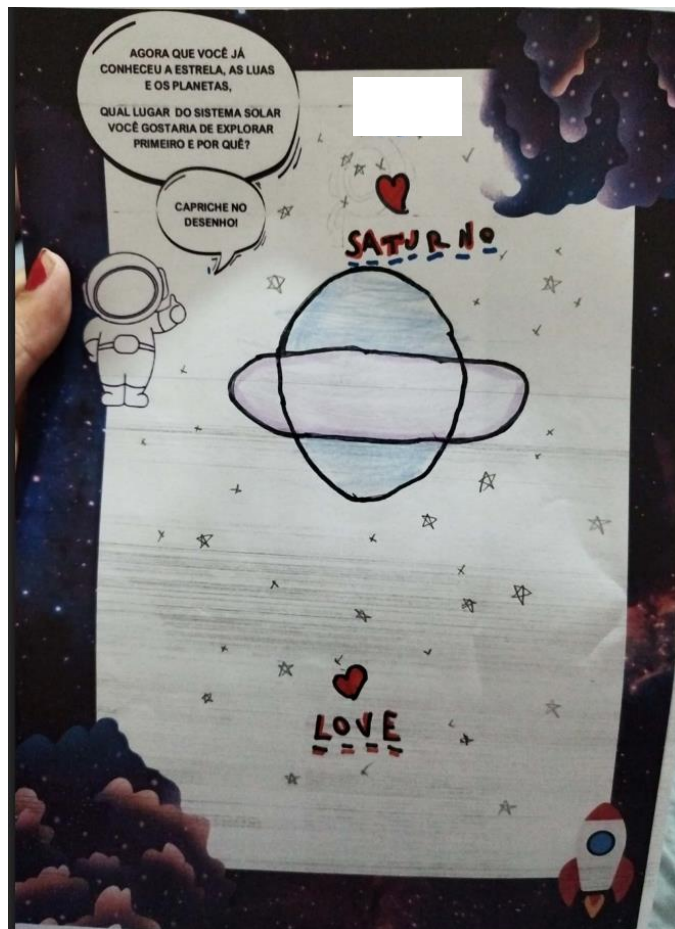 AGORA QUE VOCÊ JÁ
CONHECEU A ESTRELA, AS LUAS
E OS PLANETAS,
QUAL LUGAR DO SISTEMA SOLAR
VOCÊ GOSTARIA DE EXPLORAR
PRIMEIRO E POR QUÊ?
CAPRICHE NO
DESENHO!
SATURNO
LOVE